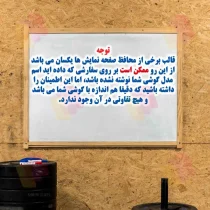 توجه
قالب برخی از محافظ صفحه نمایش ها یکسان می باشد
از این رو ممکن است بر روی سفارشی که داده اید اسم
مدل گوشی شما نوشته نشده باشد، اما این اطمینان را
داشته باشید که دقیقا هم اندازه با گوشی شما می باشد
و هیچ تفاوتی در آن وجود ندارد.